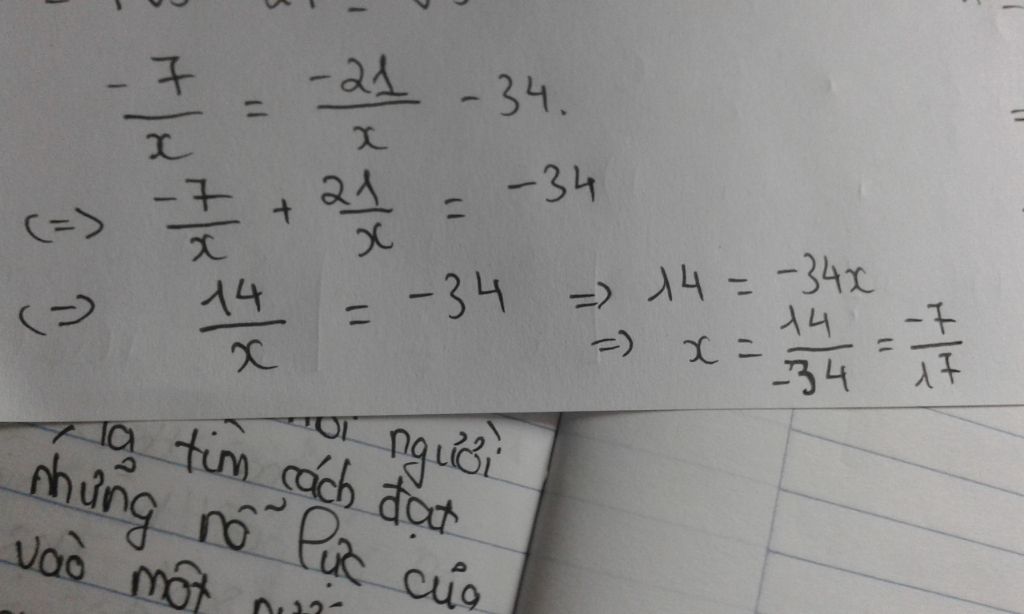 -7/x = -21/x - 34.
(=> -7/x + 21/x = -34
(=> 14/x = -34 => 14 = -34x
=> x = 14/-34 = -7/17
là tìm cách đạt
người
những nỗ lực của
vào một